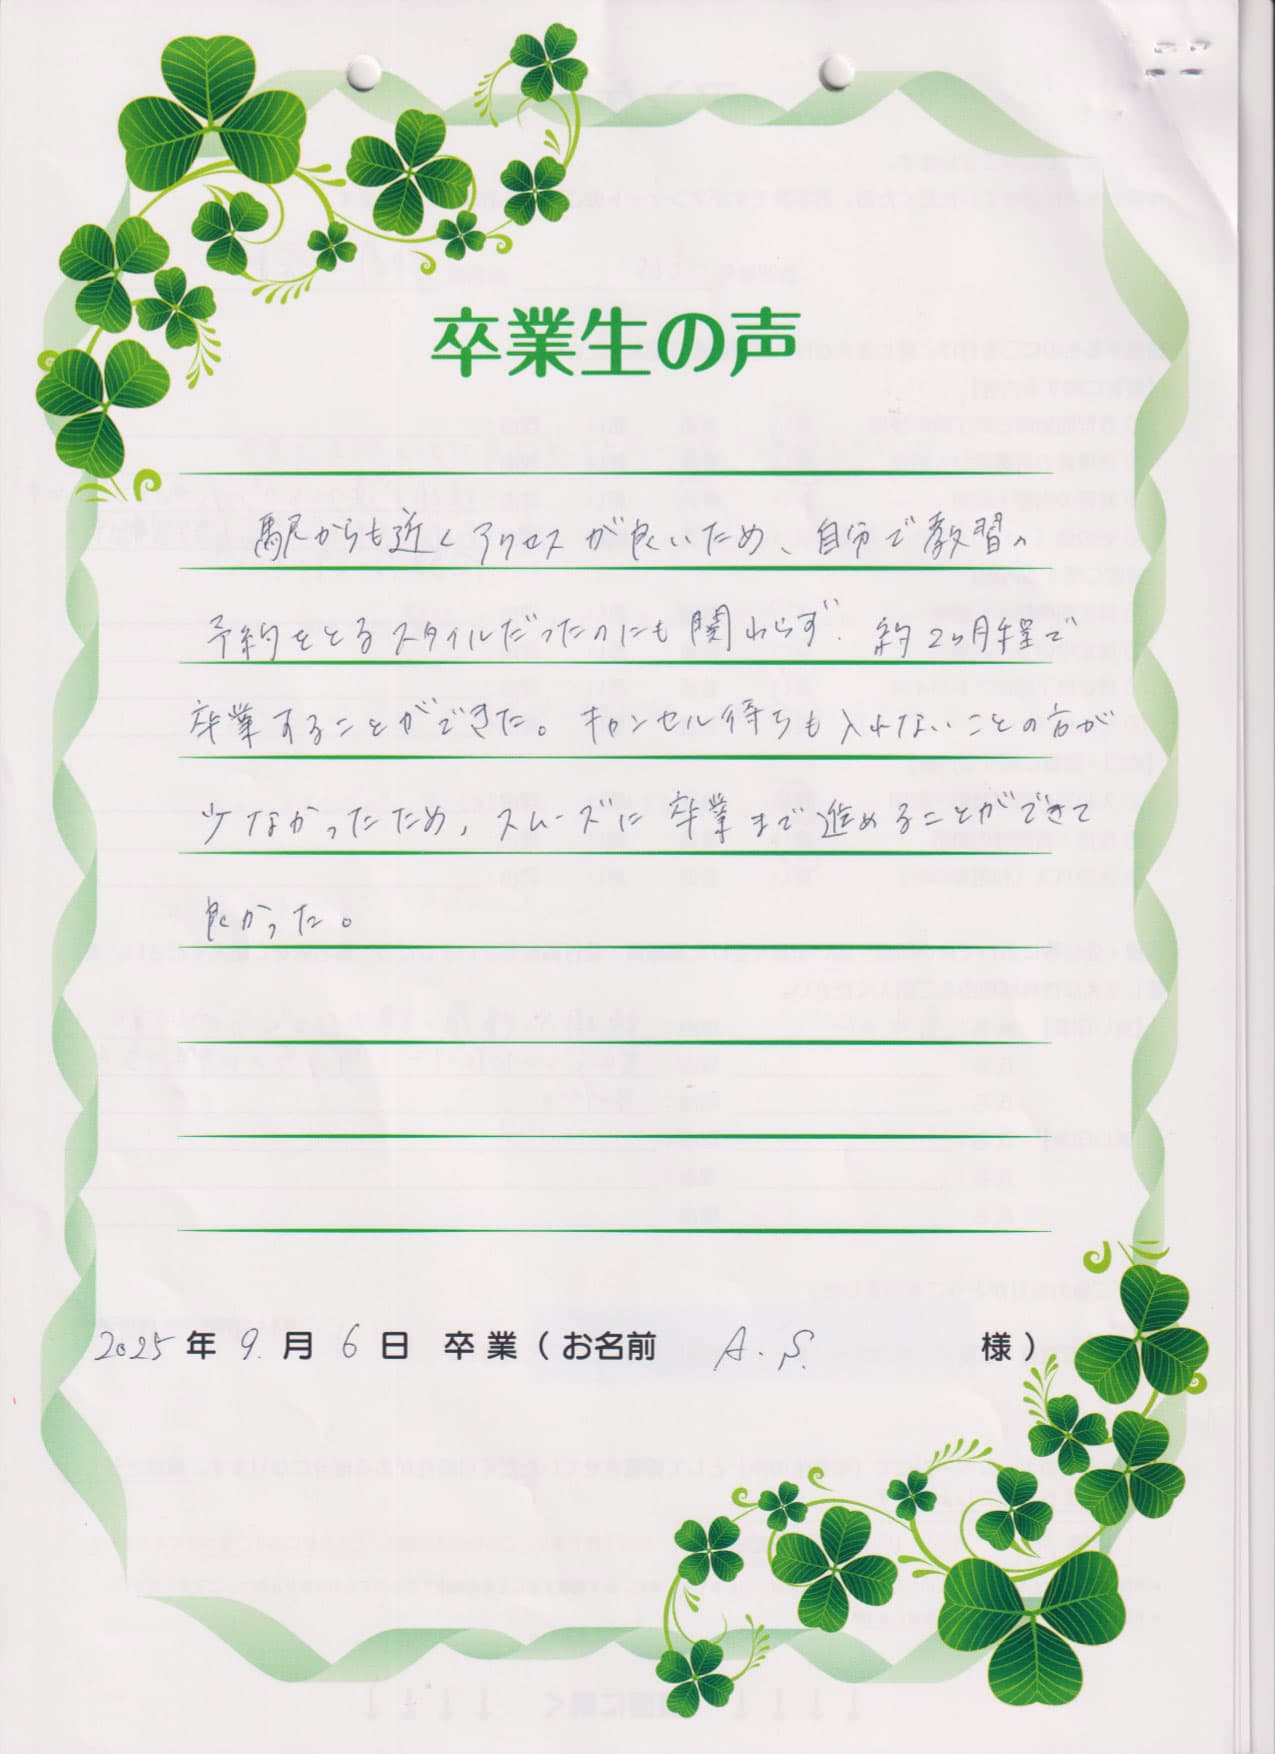 卒業生の声
駅からも近くアクセスが良いため、自分で教習の
予約をとるスタイルだったのにも関わらず、約2ヶ月程で
卒業することができた。キャンセル待ちも入れないことの方が
少なかったため、スムーズに卒業まで進めることができて
良かった。
2025年9.月6日 卒業(お名前 A.S. 様)